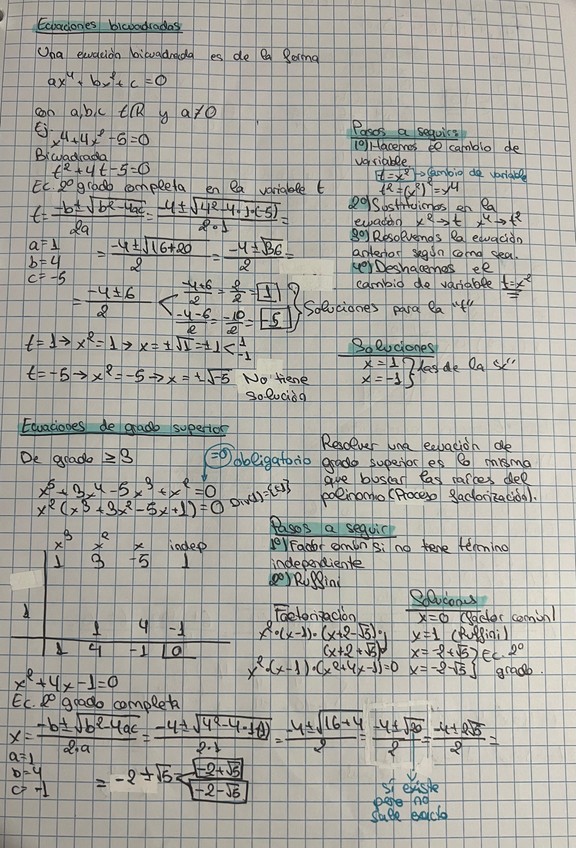 Ecuaciones bicuadradas
Una ecuación bicuadrada es de la forma
ax⁴ + bx² + c = 0
con a,b,c ∈ ℝ y a≠0
Ej: x⁴+4x²-5=0
Bicuadrada
t²+4t-5=0
Ec. 2º grado completa en la variable t
t = (-b±√(b²-4ac))/2a = (-4±√(4²-4·1·(-5)))/2·1 =
a=1
b=4
c=-5
= (-4±√(16+20))/2 = (-4±√36)/2 =
= (-4±6)/2 < (-4+6)/2 = 2/2 = 1
(-4-6)/2 = -10/2 = -5
Soluciones para la "t"
t=1→x²=1→x=±√1=±1< 1
-1
t=-5→x²=-5→x=±√-5 No tiene
solución
Pasos a seguir:
1º) Hacemos el cambio de
variable
t=x² → cambio de variable
t²=(x²)²=x⁴
2º) Sustituimos en la
ecuación x²→t x⁴→t²
3º) Resolvemos la ecuación
anterior según como sea.
4º) Deshacemos el
cambio de variable t=x²
Soluciones
x=1
x=-1
las de la "x"
Ecuaciones de grado superior
De grado ≥3
=0 obligatorio
x⁵+3x⁴-5x³+x²=0
x²(x³+3x²-5x+1)=0 Div(1)={±1}
Resolver una ecuación de
grado superior es lo mismo
que buscar las raíces del
polinomio (Proceso factorización).
Pasos a seguir
1º) Factor común si no tiene término
independiente
2º) Ruffini
x³ x² x indep
1 3 -5 1
1
1 4 -1
1 4 -1 0
Factorización
x²·(x-1)·(x+2-√5)·
(x+2+√5)
x²·(x-1)·(x²+4x-1)=0
Soluciones
x=0 (factor común)
x=1 (Ruffini)
x=-2+√5
x=-2-√5
Ec. 2º
grado.
x²+4x-1=0
Ec. 2º grado completa
x = (-b±√(b²-4ac))/2·a = (-4±√(4²-4·1·(-1)))/2·1 = (-4±√(16+4))/2 = (-4±√20)/2 = (-4±2√5)/2 =
a=1
b=4
c=-1
= -2±√5 < -2+√5
-2-√5
Sí existe
pero no
sale exacto